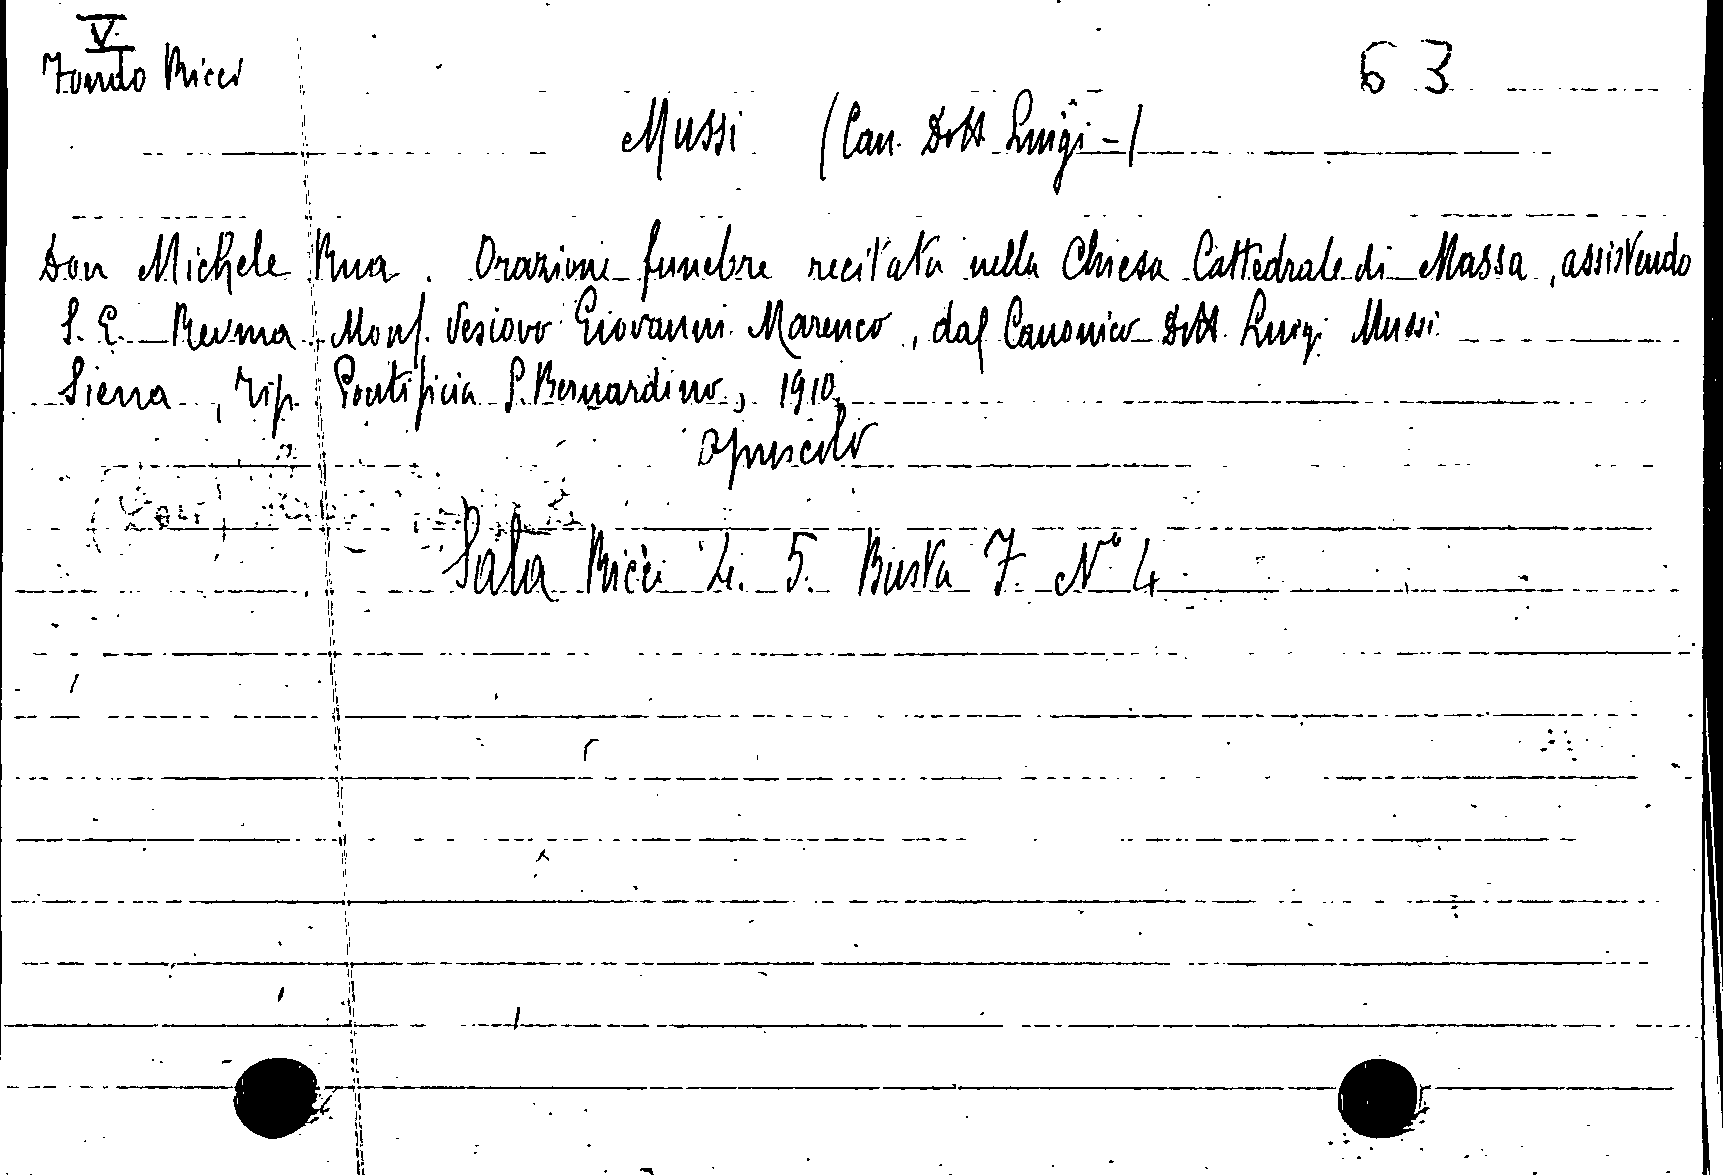 V.
Fondo Ricci
63
Mussi (Can. Dott Luigi -)
Don Michele Rua. Orazione funebre recitata nella Chiesa Cattedrale di Massa, assistendo
S. E. Revma Mons. Vescovo Giovanni Marenco, dal Canonico Dott. Luigi Mussi
Siena, Tip. Pontificia S. Bernardino, 1910.
opuscolo
Sala Ricci 4. 5. Busta 7 N° 4